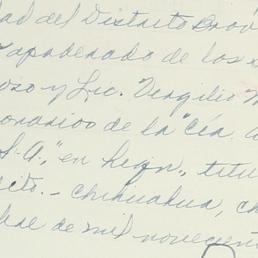 dad del Distrito Brav
apoderado de los
oso y Lic. Vergilio
onarios de la "Cía. 
S.A.", en Legn., titu
cito.- Chihuahua, Ch
bre de mil novecient